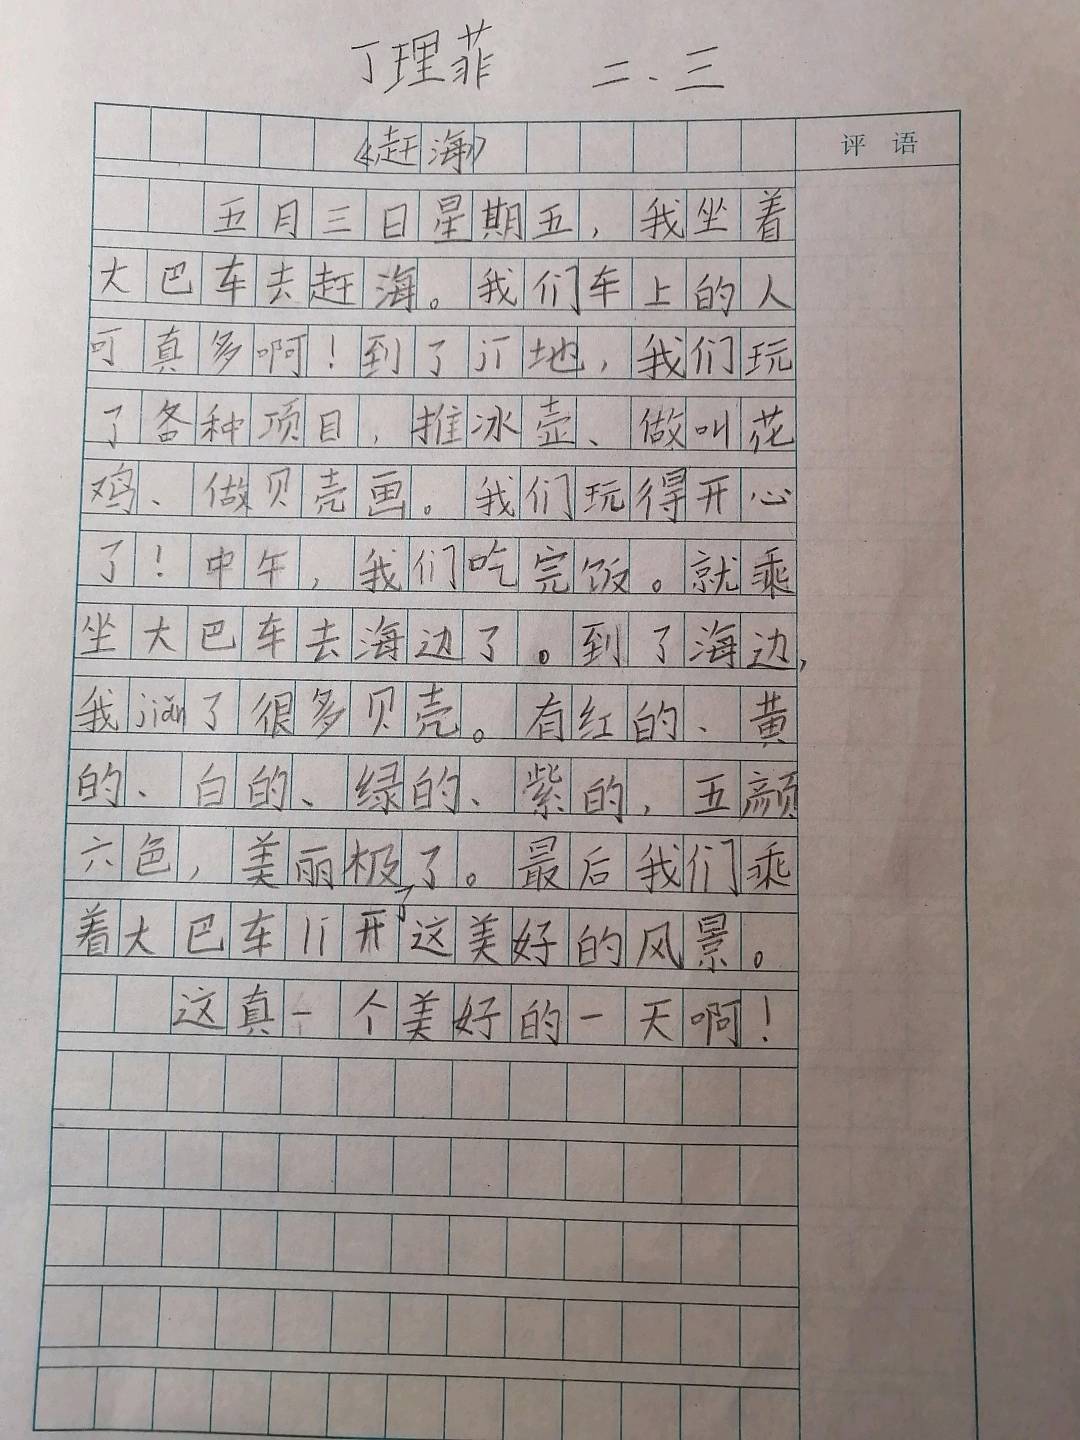 丁理菲 二、三
《赶海》
评语
五月三日星期五，我坐着
大巴车去赶海。我们车上的人
可真多啊！到了jī地，我们玩
了各种项目，推冰壶、做叫花
鸡、做贝壳画。我们玩得开心
了！中午，我们吃完饭。就乘
坐大巴车去海边了。到了海边，
我jiǎn了很多贝壳。有红的、黄
的、白的、绿的、紫的，五颜
六色，美丽极了。最后我们乘
着大巴车lí开了这美好的风景。
这真一个美好的一天啊！